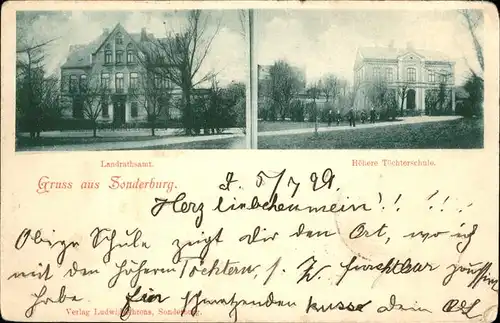 Landrathsamt.
Höhere Töchterschule.
Gruss aus Sonderburg.
5/7 99
Herzliebchenmein!!!!!
Obige Schule zeigt dir den Ort, wo ich
mit den höhern Töchtern, furchtbar
habe. Für schmatzenden Kusse dein
Verlag Ludwig Behrens, Sonderburg.